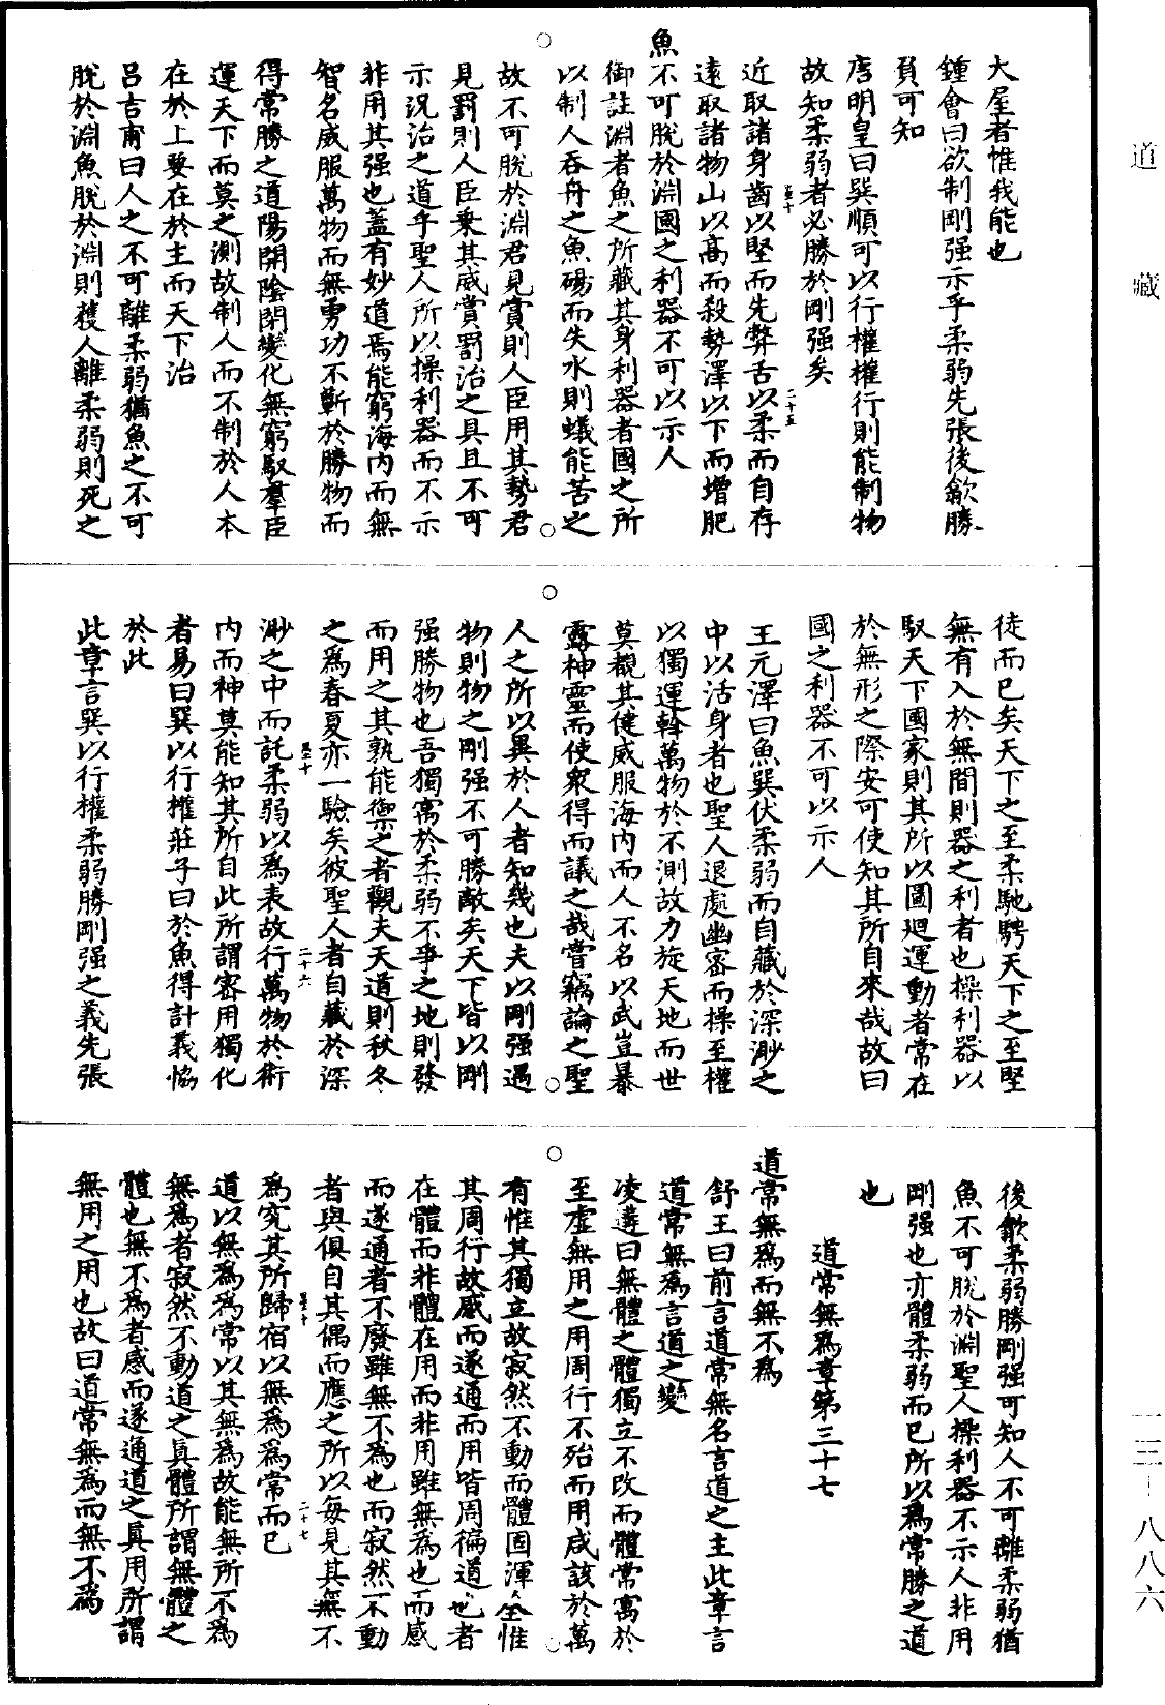 道藏
大屋者惟我能也
鍾會曰欲制剛强示乎柔弱先張後歙勝
負可知
唐明皇曰巽順可以行權權行則能制物
故知柔弱者必勝於剛强矣
近取諸身齒以堅而先弊舌以柔而自存
遠取諸物山以高而殺勢澤以下而增肥
魚不可脫於淵國之利器不可以示人
御註淵者魚之所藏其身利器者國之所
以制人吞舟之魚碭而失水則蟻能苦之
故不可脫於淵君見賞則人臣用其勢君
見罰則人臣乗其威賞罰治之具且不可
示況治之道乎聖人所以操利器而不示
非用其强也蓋有妙道焉能窮海内而無
智名威服萬物而無勇功不蘄於勝物而
得常勝之道陽開陰閉變化無窮馭羣臣
運天下而莫之測故制人而不制於人本
在於上要在於主而天下治
吕吉甫曰人之不可離柔弱猶魚之不可
脫於淵魚脫於淵則穫人離柔弱則死之
徒而已矣天下之至柔馳騁天下之至堅
無有入於無間則器之利者也操利器以
馭天下國家則其所以圖廻運動者常在
於無形之際安可使知其所自來哉故曰
國之利器不可以示人
王元澤曰魚巽伏柔弱而自藏於深渺之
中以活身者也聖人退處幽密而操至權
以獨運斡萬物於不測故力旋天地而世
莫覩其健威服海内而人不名以武豈暴
露神靈而使衆得而議之哉嘗竊論之聖
人之所以異於人者知幾也夫以剛强遇
物則物之剛强不可勝敵矣天下皆以剛
强勝物也吾獨寓於柔弱不爭之地則發
而用之其孰能禦之者觀夫天道則秋冬
之爲春夏亦一驗矣彼聖人者自藏於深
渺之中而託柔弱以爲表故行萬物於術
内而神莫能知其所自此所謂密用獨化
者易曰巽以行權莊子曰於魚得計義恊
於此
此章言巽以行權柔弱勝剛强之義先張
後歙柔弱勝剛强可知人不可離柔弱猶
魚不可脫於淵聖人操利器不示人非用
剛强也亦體柔弱而已所以爲常勝之道
也
道常無爲章第三十七
道常無爲而無不爲
舒王曰前言道常無名言道之主此章言
道常無爲言道之變
凌遘曰無體之體獨立不改而體常寓於
至虚無用之用周行不殆而用咸該於萬
有惟其獨立故寂然不動而體固渾全惟
其周行故感而遂通而用皆周徧道也者
在體而非體在用而非用雖無爲也而感
而遂通者不廢雖無不爲也而寂然不動
者與俱自其偶而應之所以每見其無不
爲究其所歸宿以無爲爲常而已
道以無爲爲常以其無爲故能無所不爲
無爲者寂然不動道之真體所謂無體之
體也無不爲者感而遂通道之真用所謂
無用之用也故曰道常無爲而無不爲
一三—八八六